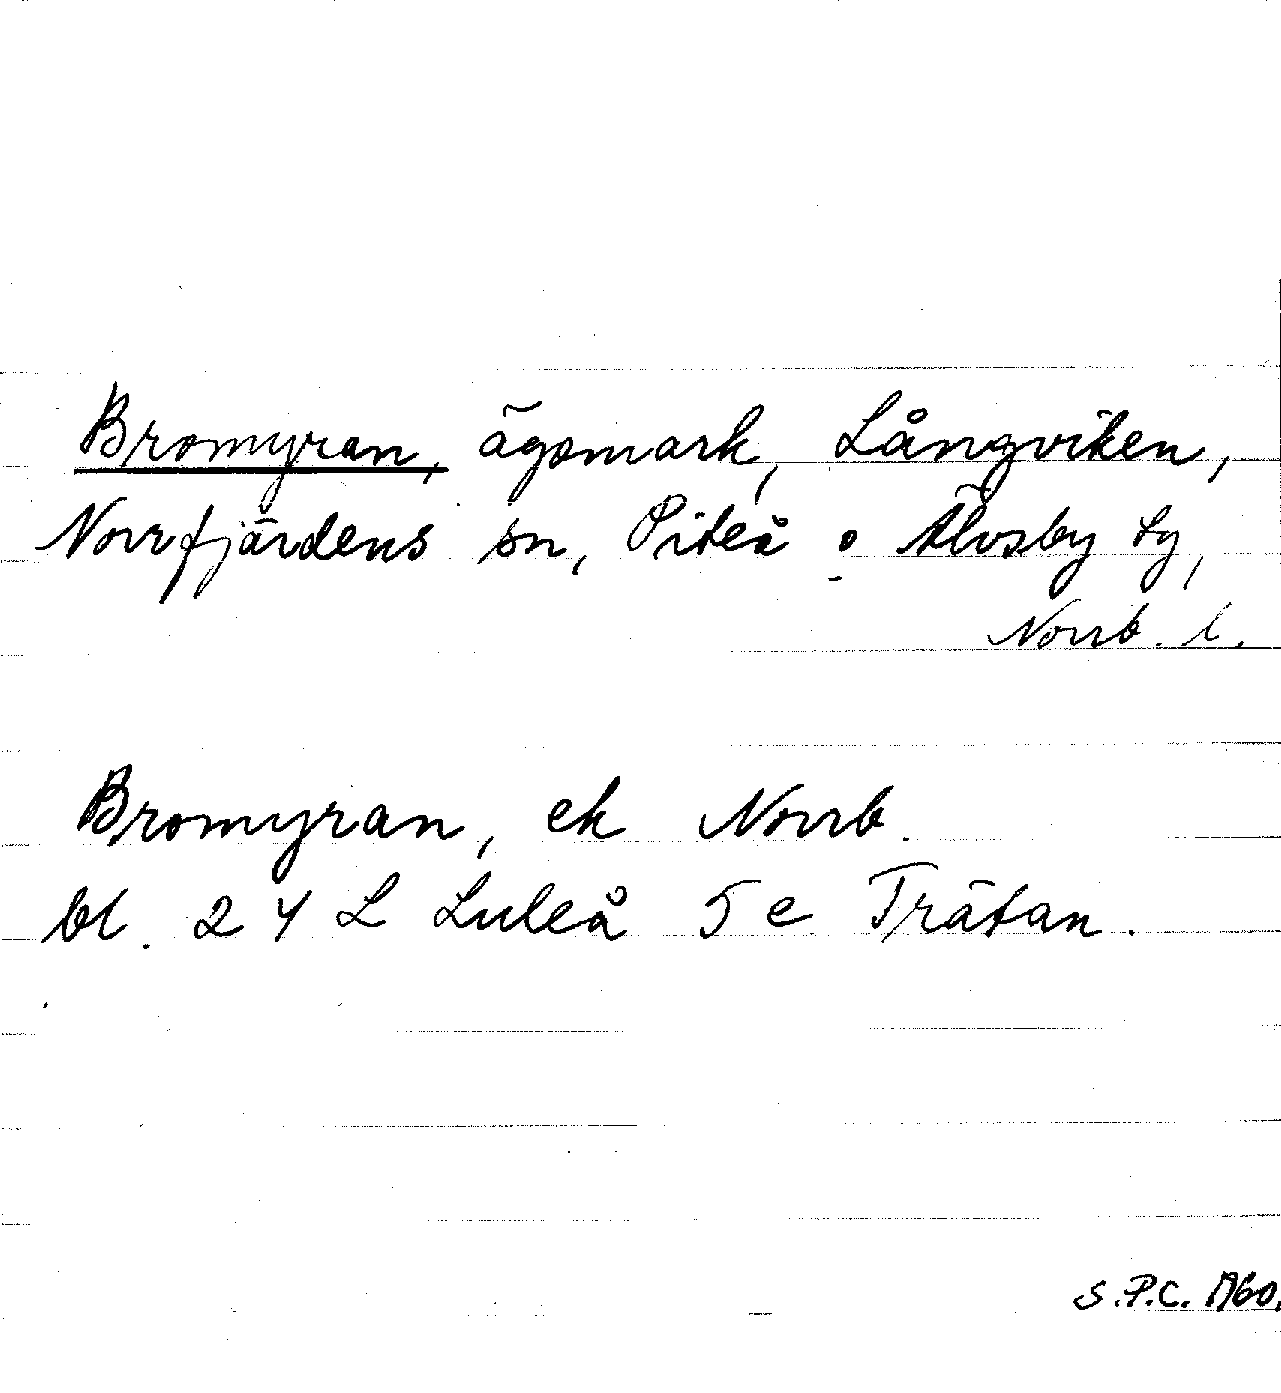 Bromyran, ägomark, Långviken,
Norrfjärdens sn, Piteå o Älvsby tg,
Norrb. l.
Bromyran, ek Norrb.
bl. 24 L Luleå 5 e Trätan.
S.P.C. 1960.